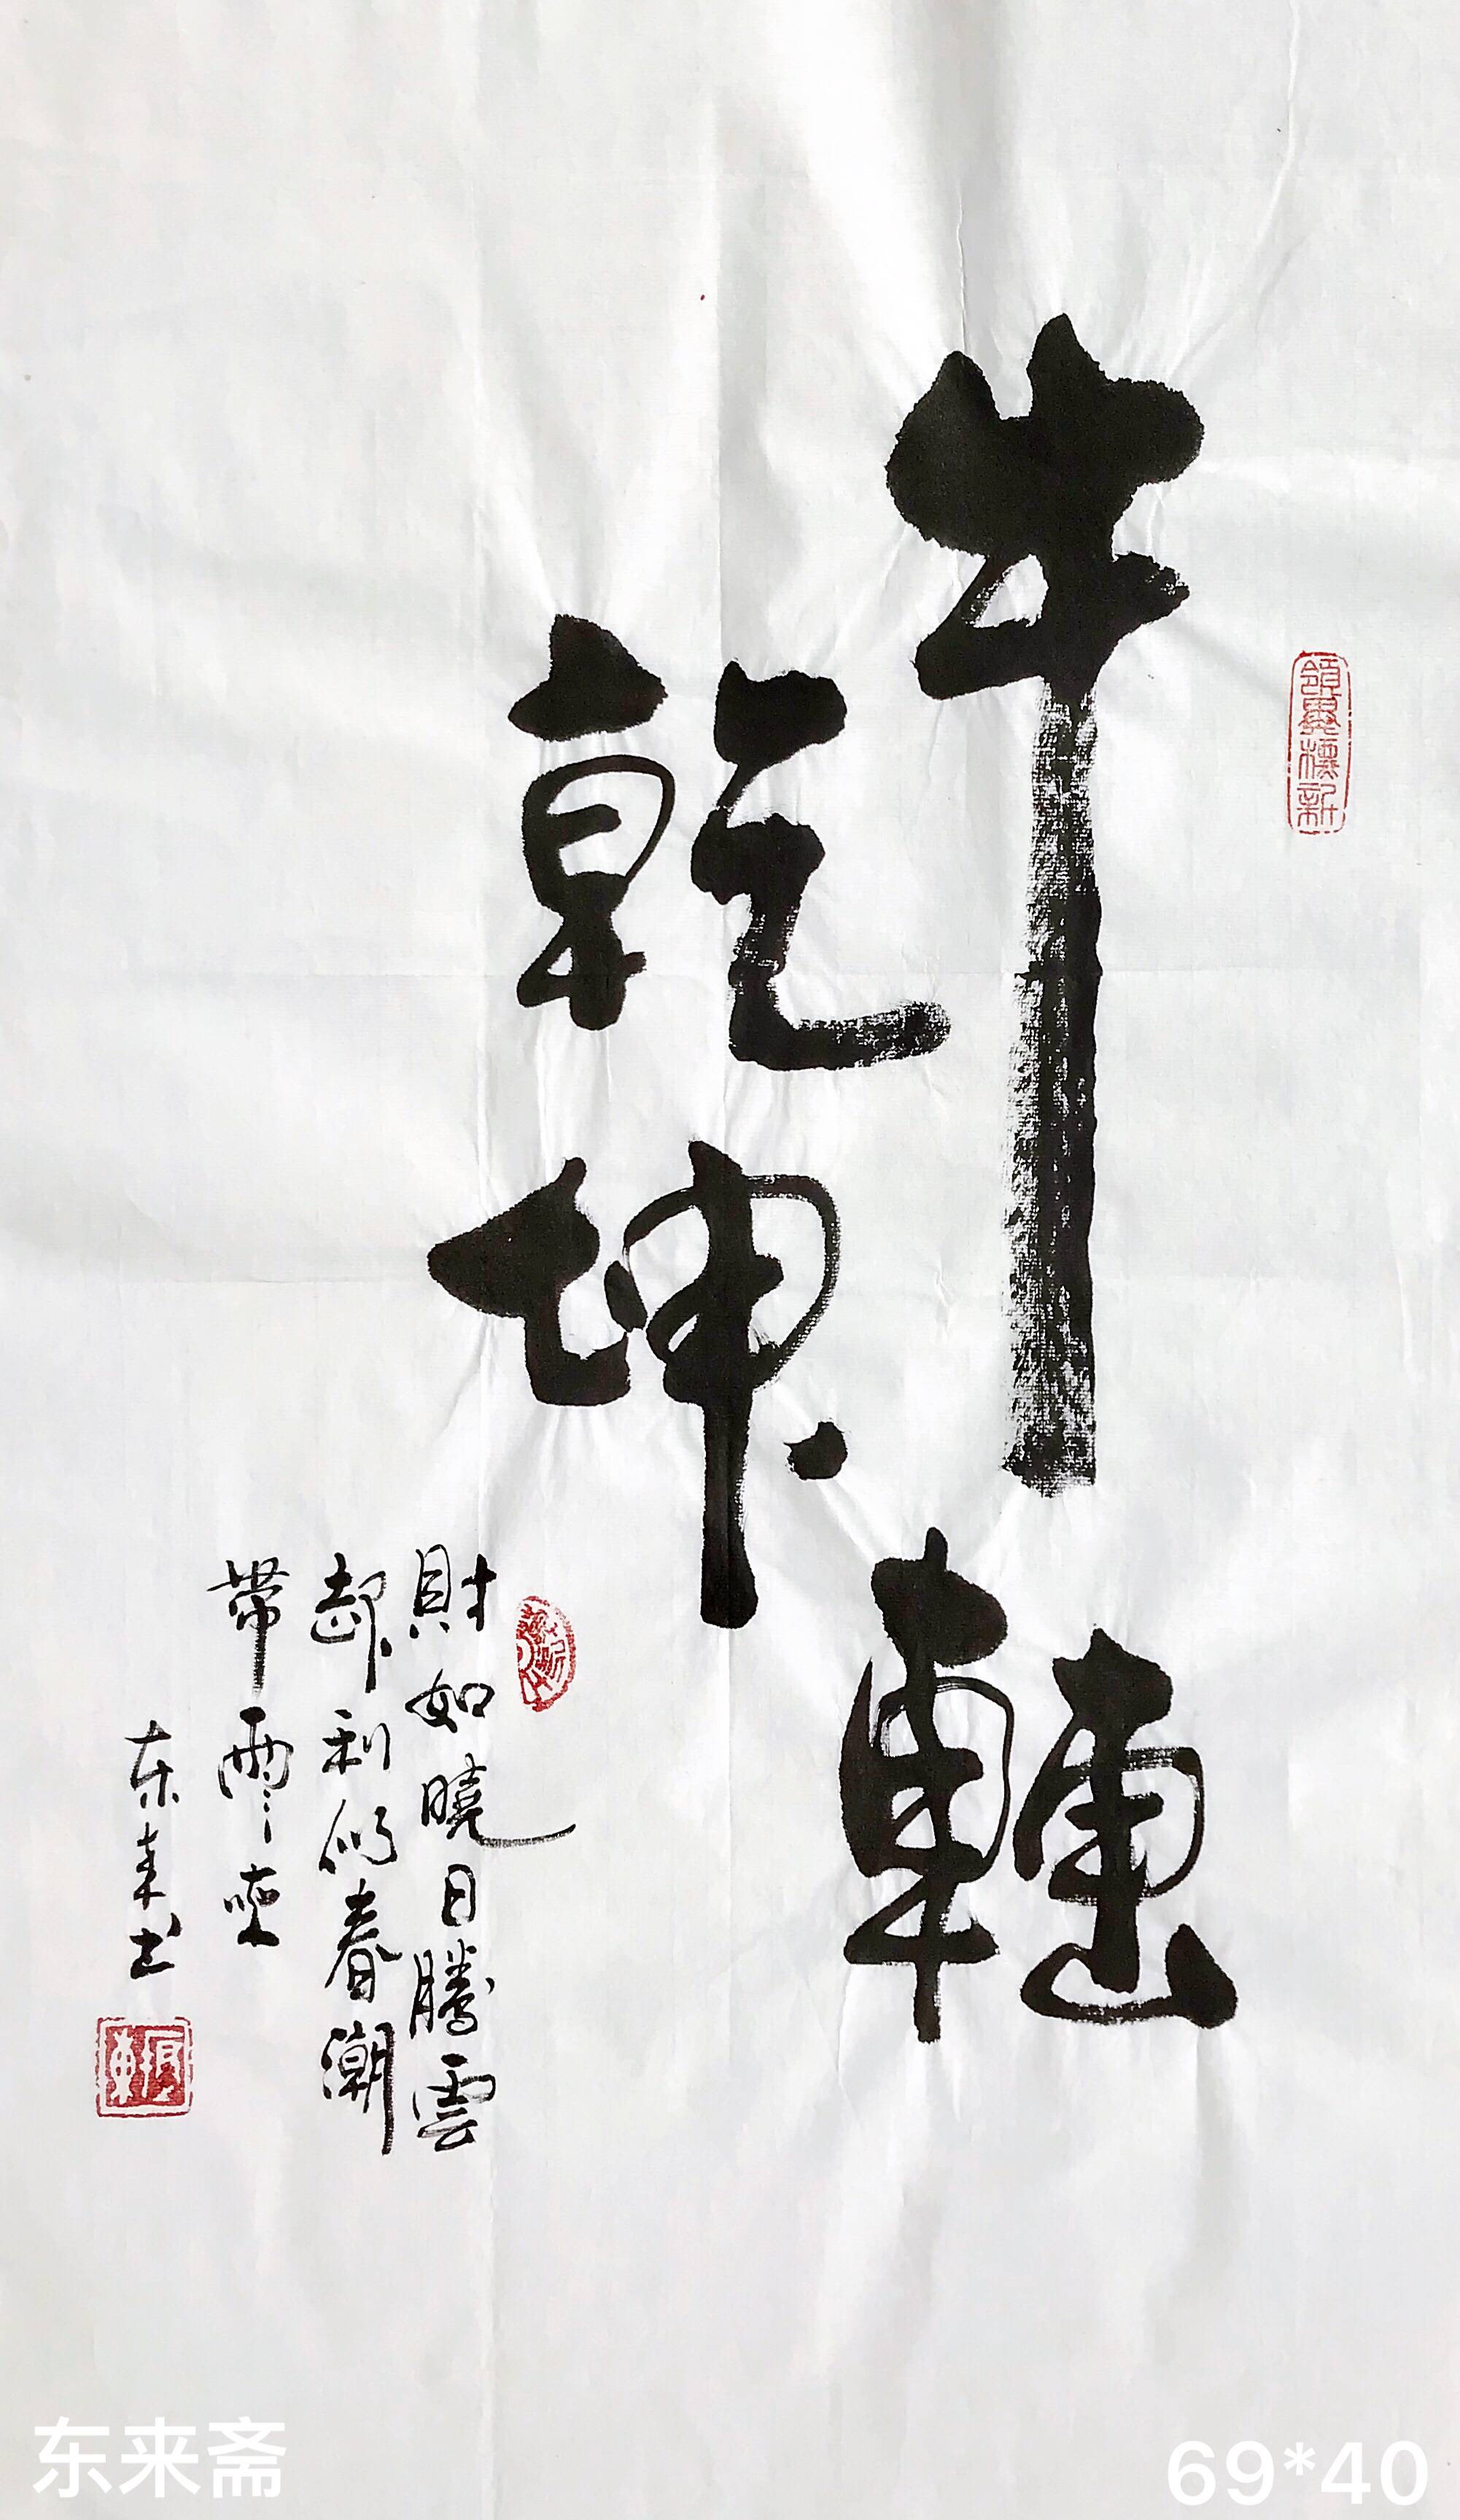 領異標新
牛轉
乾坤
財如曉日騰雲
起利似春潮
帶雨來
东来书
东来斋
69*40